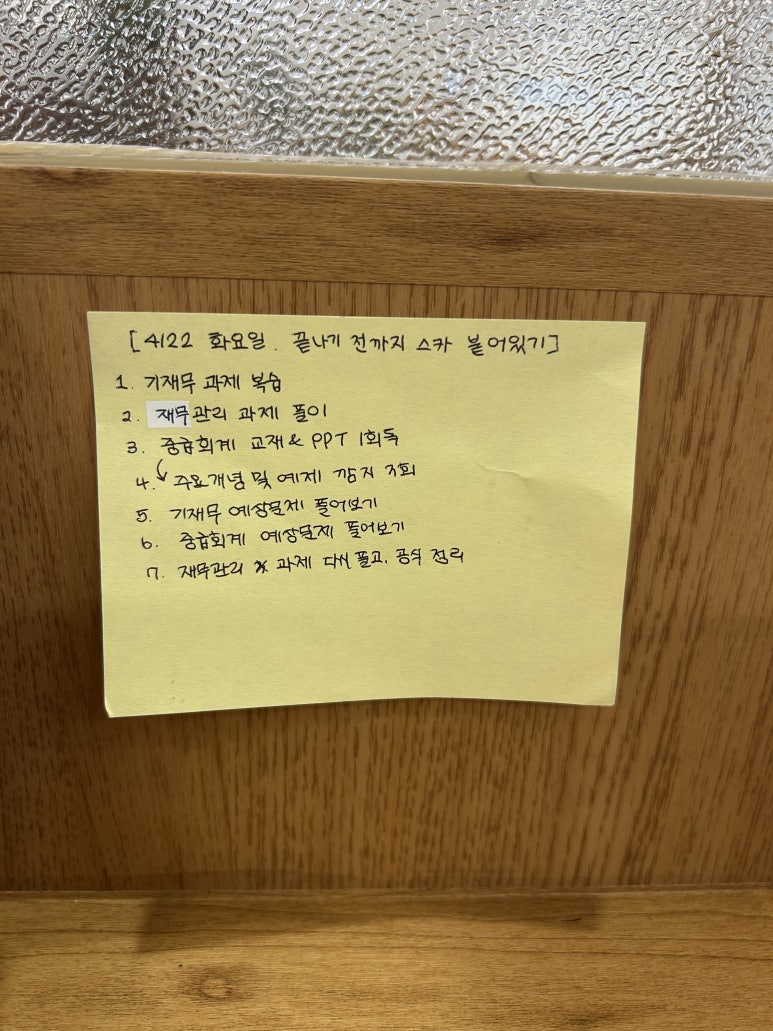 [4/22 화요일. 끝나기 전까지 스카 붙어있기]
1. 기재무 과제 복습
2. 재무관리 과제 풀이
3. 중급회계 교재 & PPT 1회독
4. 주요개념 및 예제 깜지 1회
5. 기재무 예상문제 풀어보기
6. 중급회계 예상문제 풀어보기
7. 재무관리 과제 다시 풀고, 공식 정리